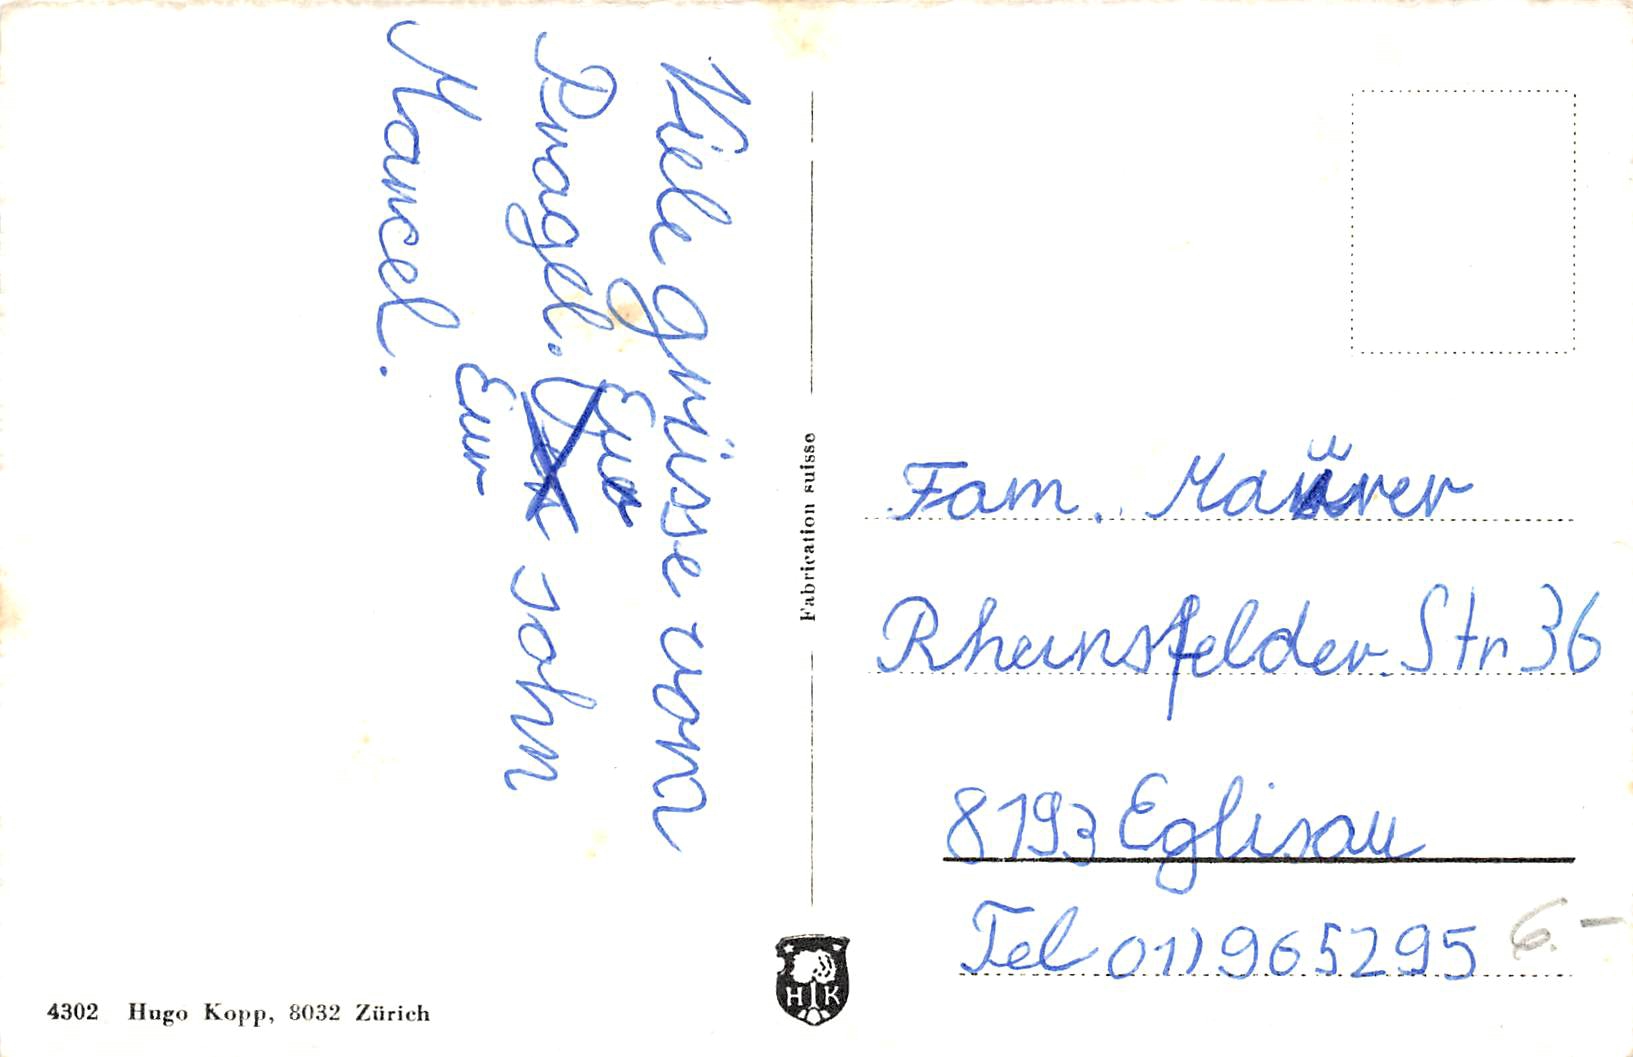 Viele grüsse vom
Pragel. Eur sohn
Eur
Marcel.
Fabrication suisse
Fam. Maürer
Rheinsfelder Str 36
8193 Eglisau
Tel 01) 965295
6.-
HK
4302 Hugo Kopp, 8032 Zürich